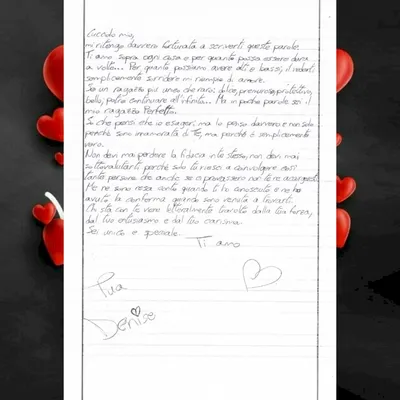 mio,
mi ritengo davvero fortunata a scriverti queste parole.
Ti amo sopra ogni cosa e per quanto possa essere dura
a volte... Per quanto possiamo avere alti e bassi, il vederti
semplicemente sorridere mi riempie di amore.
Sei un ragazzo più unico che raro: dolce, premuroso, protettivo,
bello, potrei continuare all'infinito... Ma in poche parole sei il
mio ragazzo Perfetto.
So che pensi che io esageri, ma lo penso davvero e non solo
perché sono innamorata di Te, ma perché è semplicemente
vero.
Non devi mai perdere la fiducia in te stesso, non devi mai
sottovalutarti perché solo tu riesci a coinvolgere così
tante persone che anche se ci provassero non
Me ne sono resa conto quando ti ho conosciuto e ne ho
avuto la conferma quando sono venuta a trovarti.
Chi sta con te viene letteralmente travolto dalla tua forza,
dal tuo entusiasmo e dal tuo carisma.
Sei unico e speciale.
Ti amo
Tua
Denise